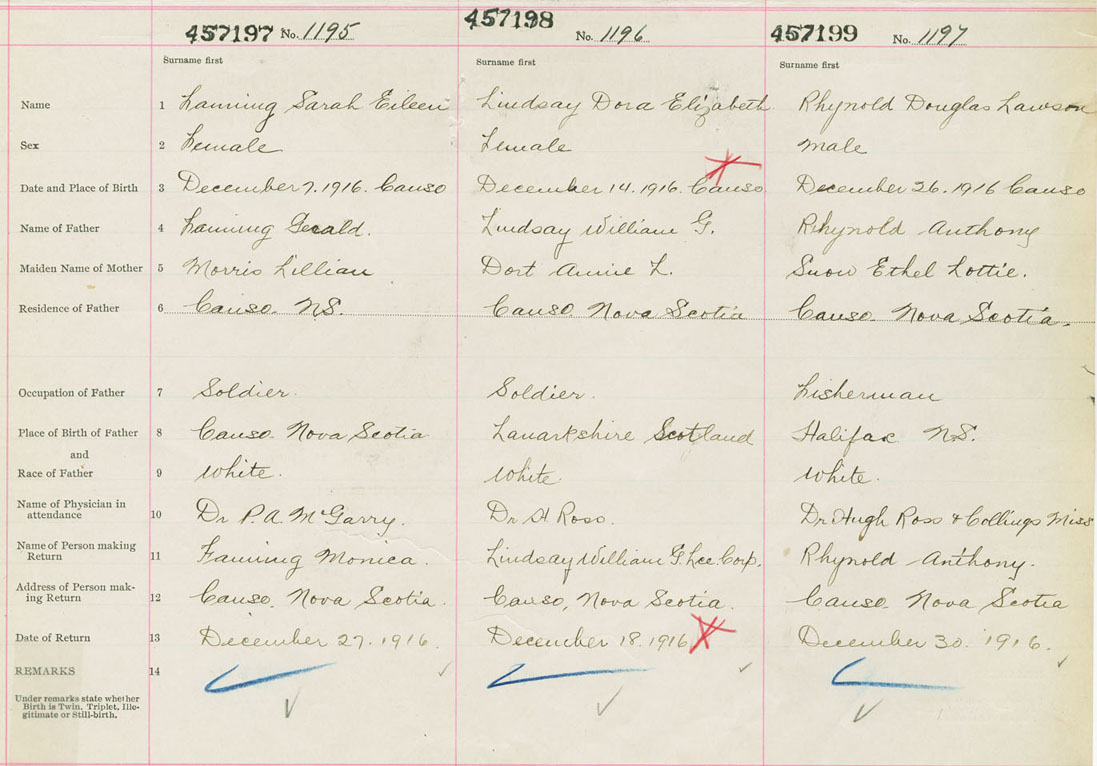 457197 No. 1195 457198 No. 1196 457199 No. 1197
Surname first Surname first Surname first
Name 1 Fanning Sarah Eileen Lindsay Dora Elizabeth Rhynold Douglas Lawson
Sex 2 Female Female Male
Date and Place of Birth 3 December 7. 1916. Canso December 14. 1916. Canso December 26. 1916 Canso
Name of Father 4 Fanning Gerald. Lindsay William G. Rhynold Anthony
Maiden Name of Mother 5 Morris Lillian Dort Annie L. Snow Ethel Lottie.
Residence of Father 6 Canso. N.S. Canso. Nova Scotia Canso. Nova Scotia.
Occupation of Father 7 Soldier. Soldier. Fisherman
Place of Birth of Father 8 Canso. Nova Scotia Lanarkshire Scotland Halifax N.S.
and
Race of Father 9 White. White. White.
Name of Physician in
attendance 10 Dr P. A. McGarry. Dr H Ross. Dr Hugh Ross + Collings Miss
Name of Person making
Return 11 Fanning Monica. Lindsay William G. Lce. Corp. Rhynold Anthony.
Address of Person mak-
ing Return 12 Canso, Nova Scotia. Canso, Nova Scotia. Canso. Nova Scotia
Date of Return 13 December 27. 1916. December 18. 1916 December 30. 1916.
REMARKS 14
Under remarks state whether
Birth is Twin, Triplet, Ille-
gitimate or Still-birth.